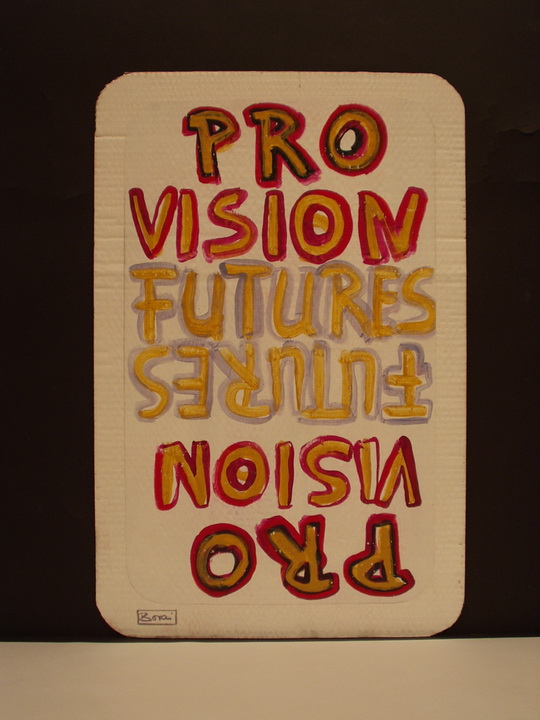 PRO
VISION
FUTURES
FUTURES
VISION
PRO